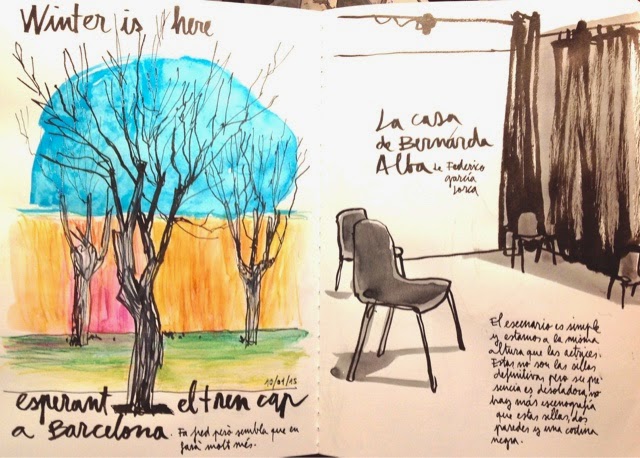 Winter is here
10/01/15
esperant el tren cap
a Barcelona. Fa fred però sembla que en
farà molt més.
La casa
de Bernarda
Alba de Federico
garcía
Lorca
El escenario es simple
y estamos a la misma
altura que las actrices.
Estas no son las sillas
definitivas pero su pre
sencia es desoladora, no
hay más escenografía
que estas sillas, dos
paredes y una cortina
negra.